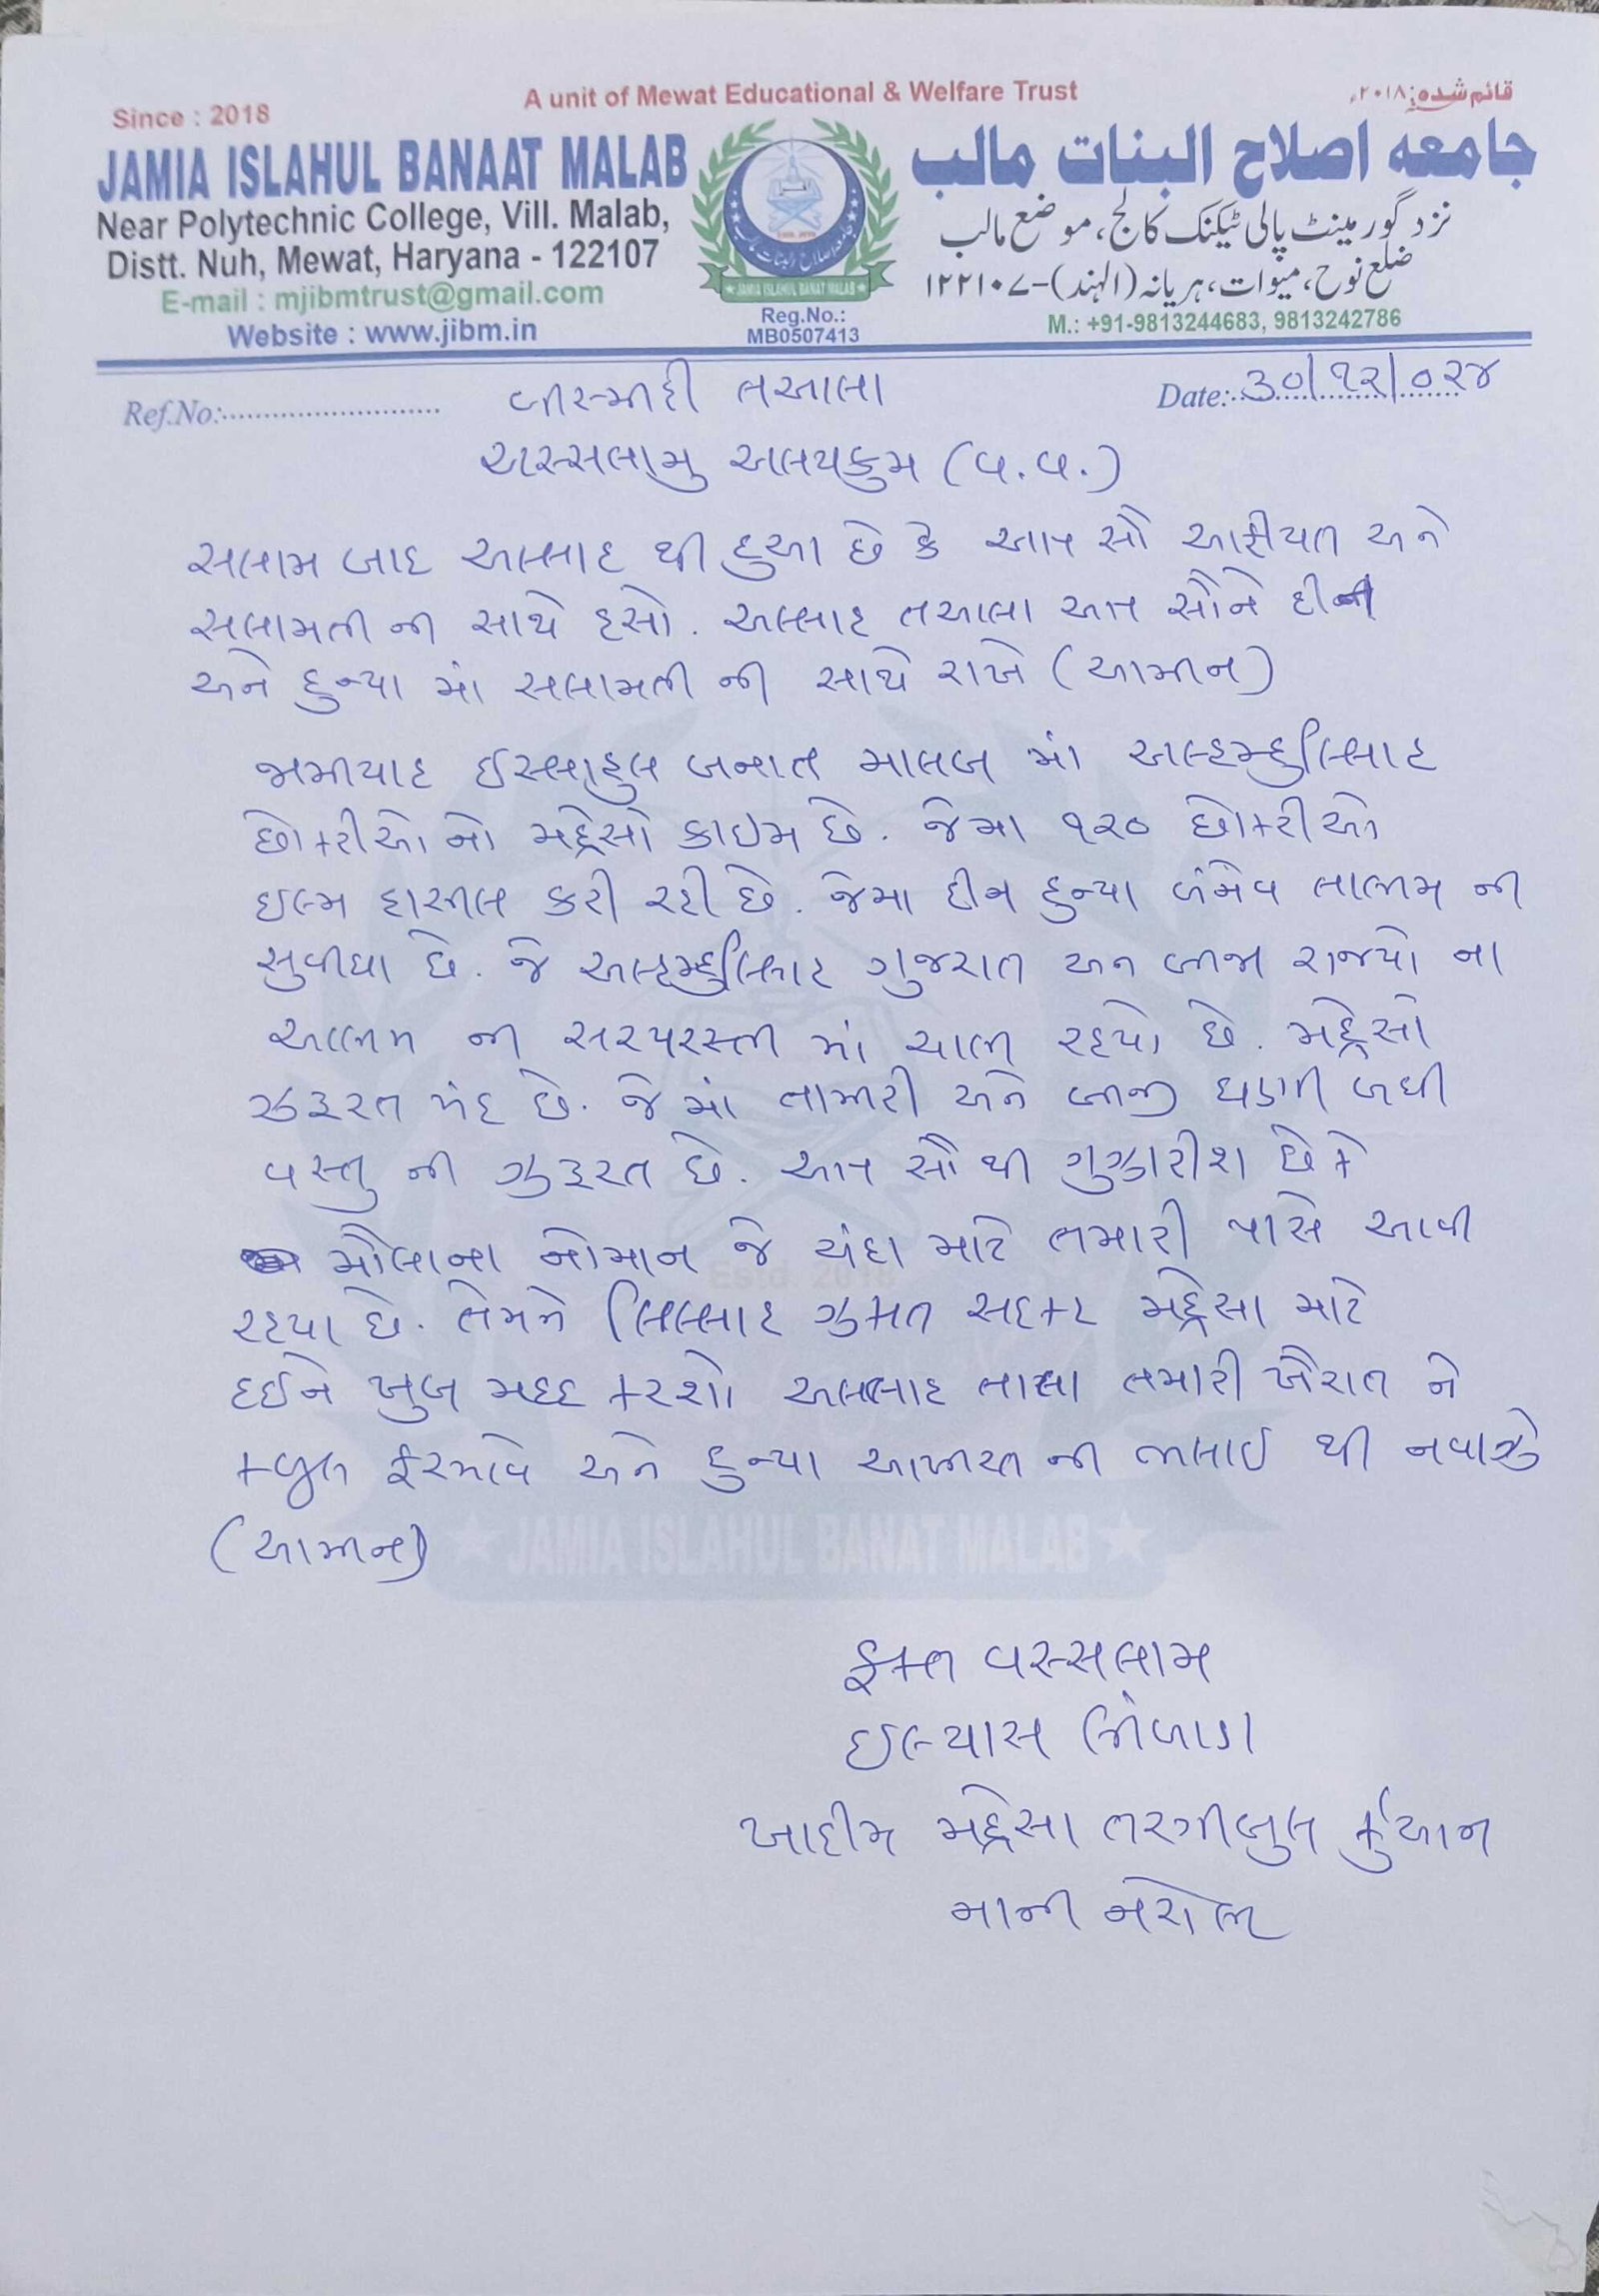 A unit of Mewat Educational & Welfare Trust
Since : 2018
قائم شدہ: ۲۰۱۸ء
JAMIA ISLAHUL BANAAT MALAB
جامعه اصلاح البنات مالب
Near Polytechnic College, Vill. Malab,
نزد گورمینٹ پالی ٹیکنک کالج، موضع مالب
Distt. Nuh, Mewat, Haryana - 122107
ضلع نوح، میوات، ہریانہ (الہند)-۱۲۲۱۰۷
E-mail : mjibmtrust@gmail.com
Website : www.jibm.in
JAMIA ISLAHUL BANAT MALAB
Reg.No.:
MB0507413
M.: +91-9813244683, 9813242786
Ref.No:
Date: ૩૦/૧૨/૦૨૪
બીસ્મીહી તઆલા
અસ્સલામુ અલયકુમ (વ.વ.)
સલામ બાદ અલ્લાહ થી દુઆ છે કે આપ સૌ આફીયત અને
સલામતી ની સાથે હસો. અલ્લાહ તઆલા આપ સૌને દીન
અને દુન્યા માં સલામતી ની સાથે રાખે (આમીન)
જામીયાહ ઈસ્લાહુલ બનાત માલબ માં અલ્હમ્દુલિલ્લાહ
છોકરીઓ નો મદ્રેસો કાઇમ છે. જેમા ૧૨૦ છોકરીઓ
ઇલ્મ હાસીલ કરી રહી છે. જેમા દીન દુન્યા બંનેવ તાલીમ ની
સુવીધા છે. જે અલ્હમ્દુલિલ્લાહ ગુજરાત અન બીજા રાજ્યો ના
આલીમ ની સરપરસ્તી માં ચાલી રહયો છે. મદ્રેસો
ઝરૂરત મંદ છે. જે માં તામીરી અને બીજી ઘણી બધી
વસ્તુ ની ઝરૂરત છે. આપ સૌ થી ગુઝારીશ છે કે
મૌલાના નોમાન જે ચંદા માટે તમારી પાસે આવી
રહયા છે. તેમને લિલ્લાહ ઝકાત સદકહ મદ્રેસા માટે
દઈને ખુબ મદદ કરશો અલ્લાહ તાલા તમારી ખૈરાત ને
કબુલ ફરમાવે અને દુન્યા આખીરત ની ભલાઇ થી નવાઝે
(આમીન)
Estd. 2018
JAMIA ISLAHUL BANAT MALAB
ફકત વસ્સલામ
ઈલ્યાસ
ખાદીમ મદ્રેસા તરગીબુલ કુર્આન
માની નરોલી